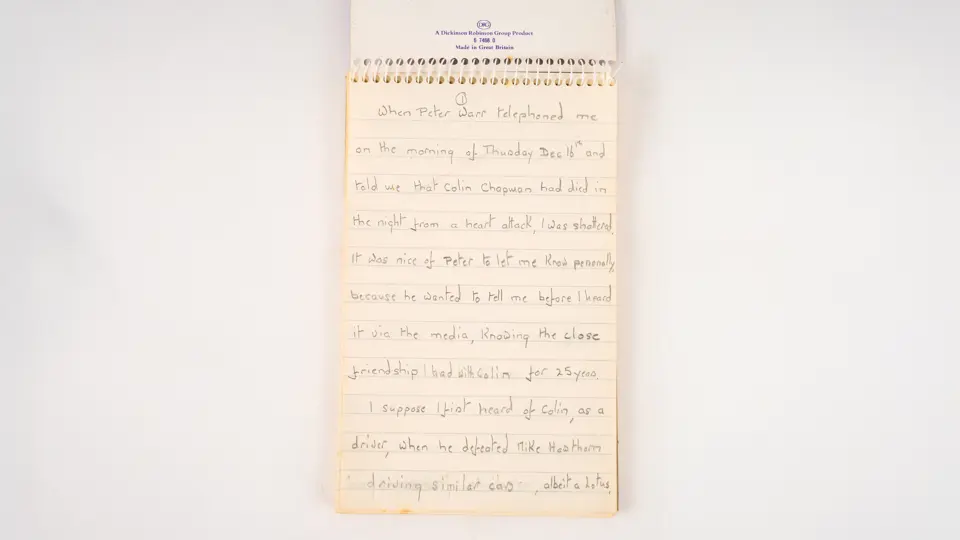 DRG
A Dickinson Robinson Group Product
5 7468 0
Made in Great Britain
1
When Peter Warr telephoned me
on the morning of Thusday Dec 16th and
told me that Colin Chapman had died in
the night from a heart attack, I was shattered.
It was nice of Peter to let me know personally,
because he wanted to tell me before I heard
it via the media, knowing the close
friendship I had with Colin for 25 years.
I suppose I first heard of Colin, as a
driver, when he defeated Mike Hawthorn
driving similar cars, albeit a Lotus,